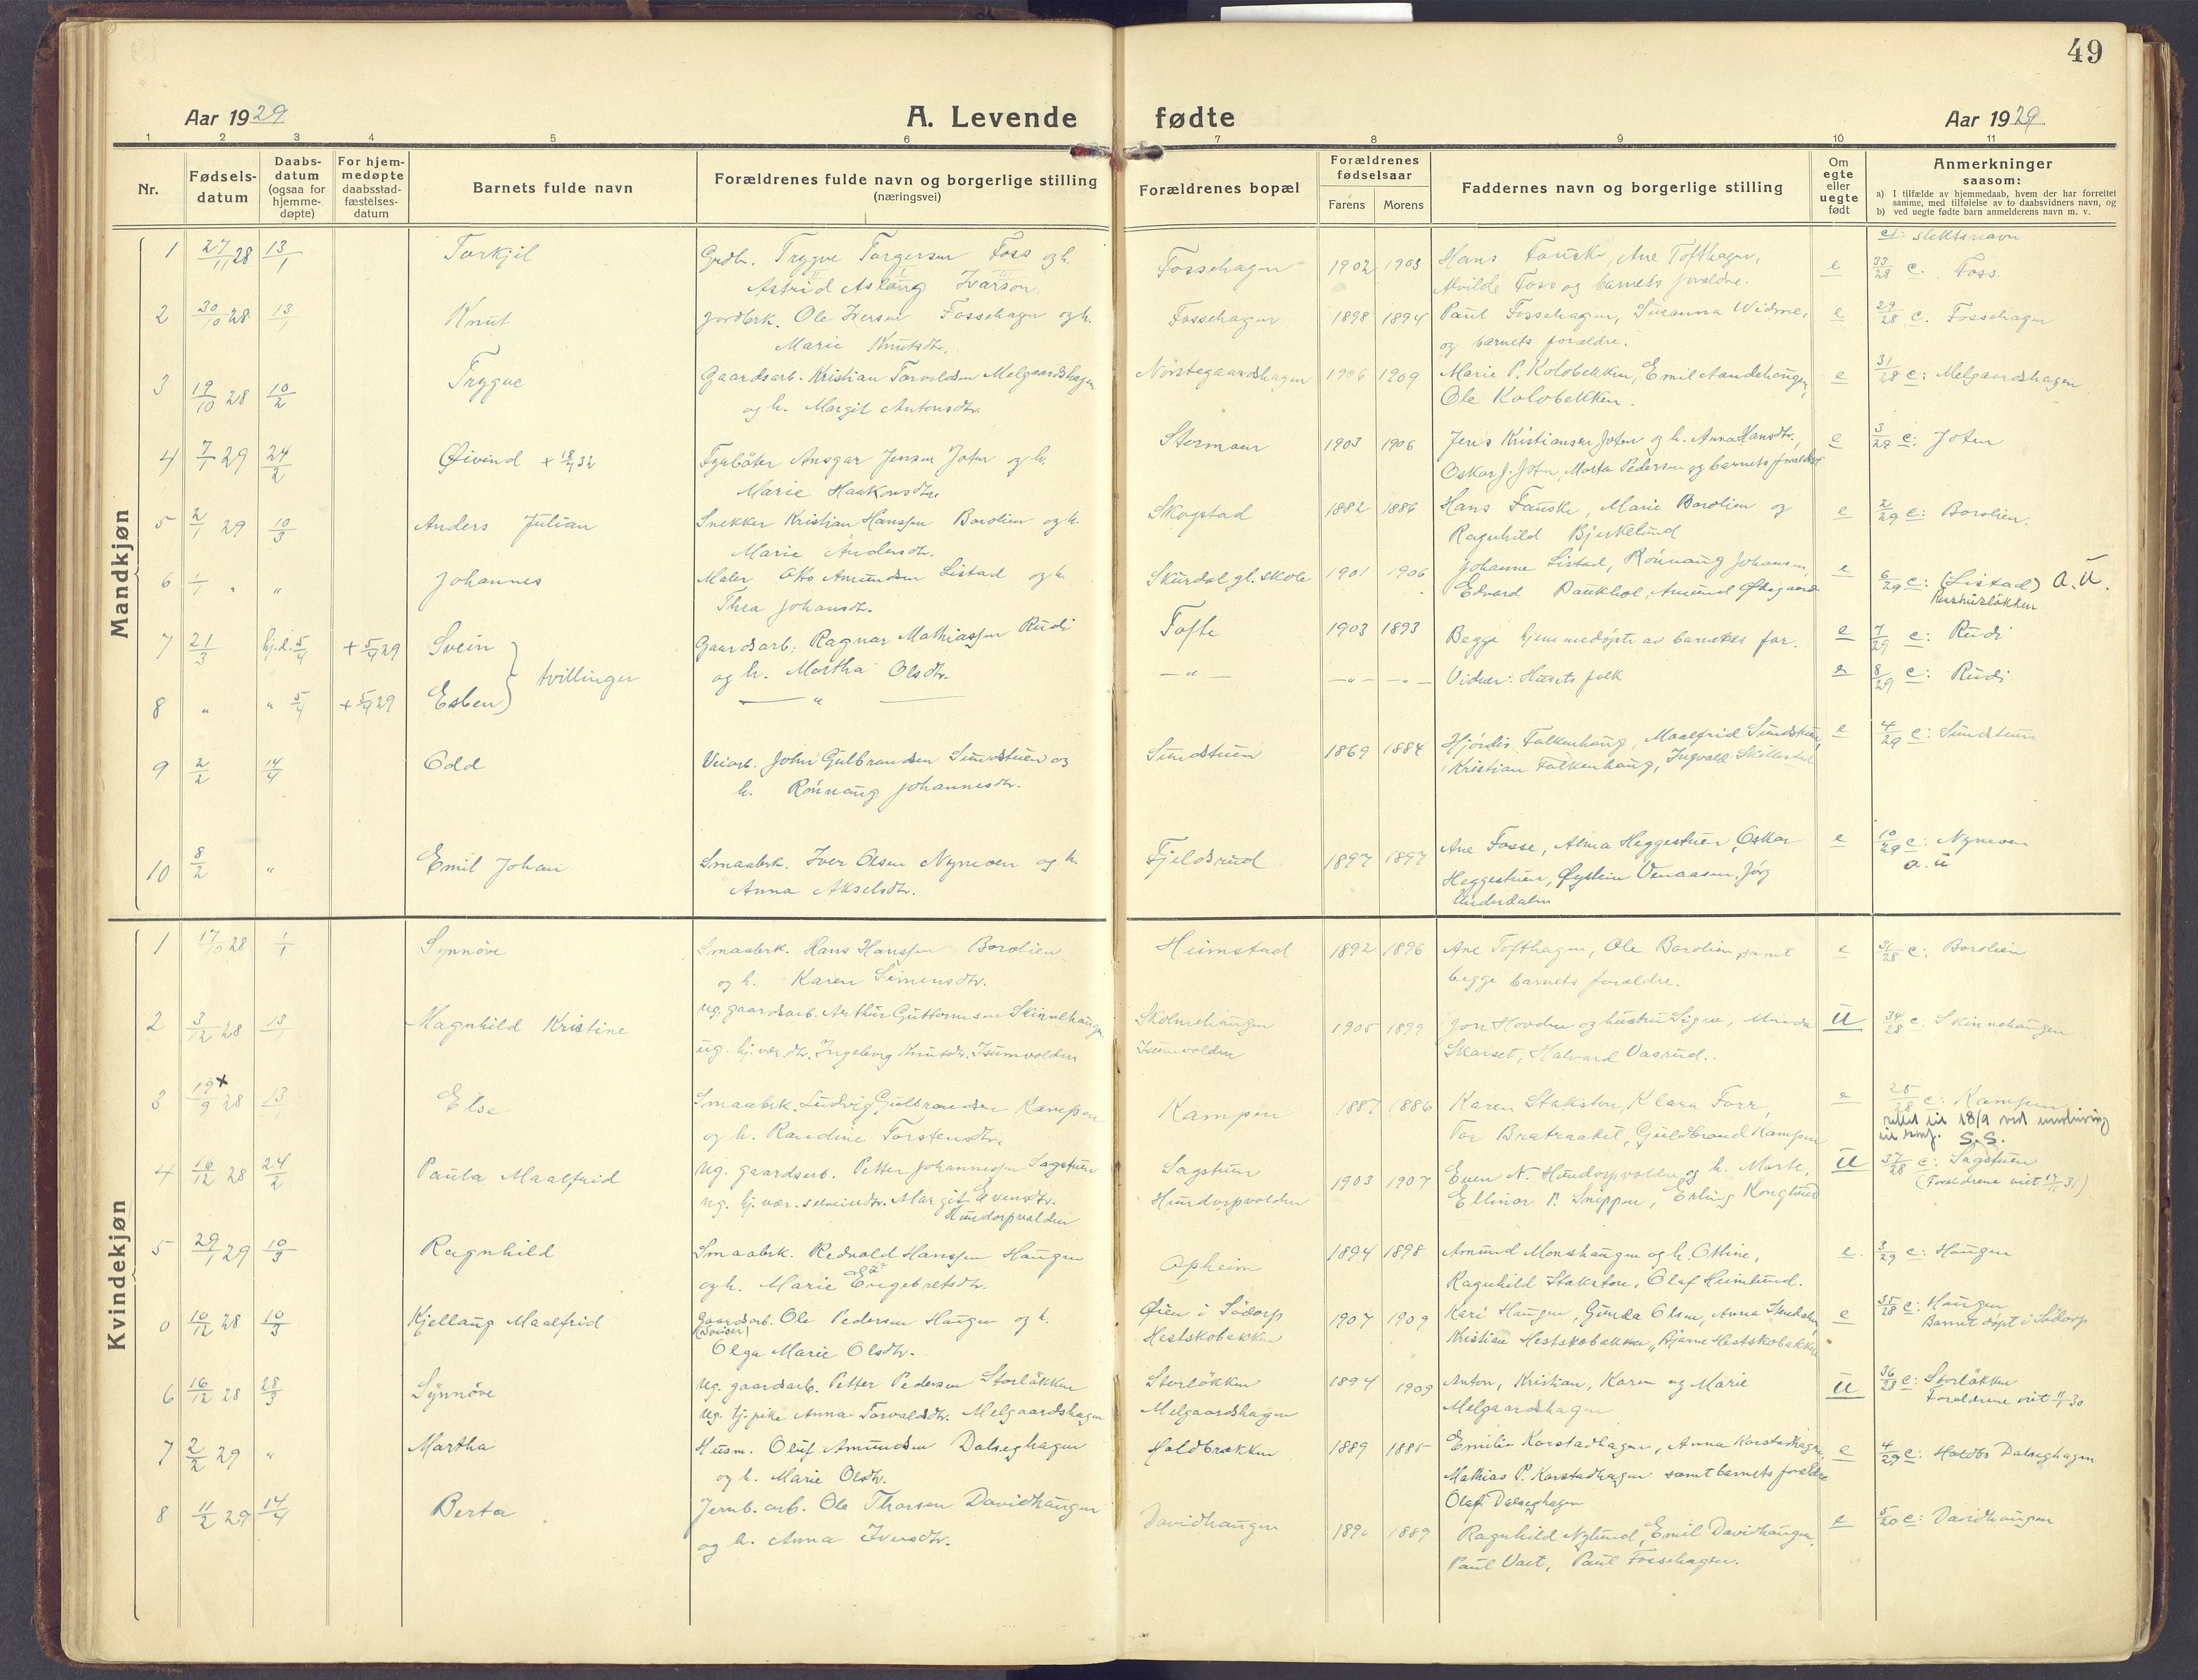 49
Aar 1929 A. Levende fødte Aar 1929
1 2 3 4 5 6 7 8 9 10 11
Nr. Fødsels-datum Daabs-datum (ogsaa for hjemme-døpte) For hjem-medøpte daabsstad-fæstelses-datum Barnets fulde navn Forældrenes fulde navn og borgerlige stilling (næringsvei) Forældrenes bopæl Forældrenes fødselsaar Farens Morens Faddernes navn og borgerlige stilling Om egte eller uegte født Anmerkninger saasom:
a) I tilfælde av hjemmedaab, hvem der har forrettet samme, med tilføielse av to daabsvidners navn, og
b) ved uegte fødte barn anmelderens navn m. v.
Mandkjøn
c: slektsnavn
1 27/11 28 13/1 Torkjil Grdbr. Trygve Torgersen Foss og h. Fossehagen 1902 1903 Hans Fauske, Ane Tofthagen, e 33/28 c. Foss.
Astrid Aslaug Ivarson Alvilde Foss og barnets forældre.
2 30/10 28 13/1 Knut Jordbrk. Ole Iversen Fossehagen og h. Fossehagen 1898 1894 Paul Fossehagen, Susanna Widme, e 29/28 c. Fossehagen
Marie Knutsdtr. og barnets forældre.
3 19/10 28 10/2 Trygve Gaardsarb. Kristian Torvaldsen Melgaardshagen Nörstegaardshagen 1906 1909 Marie P. Kolobekken, Emil Aandehaugen, e 31/28 c: Melgaardshagen
og h. Margit Antonsdtr. Ole Kolobekken.
4 7/1 29 24/2 Øivind + 18/4 32 Fyrböter Ansgar Jensen Jotun og h. Stormoen 1903 1906 Jens Kristiansen Jotun og h. Anna Hansdtr., e 3/29 c: Jotun
Marie Haakonsdtr. Oskar J. Jotun, Marta Pedersen og barnets forældre
5 2/1 29 10/3 Anders Julian Snekker Kristian Hanssen Borolien og h. Skogstad 1882 1886 Hans Fauske, Marie Borolien og e 2/29 c: Borolien.
Marie Andersdtr. Ragnhild Bjerkelund
6 1/1 " " Johannes Maler Otto Amundsen Listad og h. Skurdal gl. skole 1901 1906 Johanne Listad, Rönnaug Johansen, e 6/29 c: (Listad) a.u.
Thea Johansdtr. Edvard Baukhol, Amund Öktegaard
7 21/3 hj.d. 5/4 + 5/4 29 Svein } tvillinger Gaardsarb. Ragnar Mathiassen Rudi Tofte 1903 1893 Begge hjemmedöpte av barnets far. e 7/29 c: Rudi
og h. Martha Olsdtr.
8 " " 5/4 + 5/4 29 Esben — " — — " — — " — — " — Vidner: Husets folk e 8/29 c: Rudi
9 2/2 14/4 Odd Veiarb. John Gulbrandsen Sundstuen og Sundstuen 1869 1884 Hjördis Falkenhaug, Maalfrid Sundstuen, e 4/29 c: Sundstuen
h. Rönnaug Johannesdtr. Kristian Falkenhaug, Ingvald Skillestad
10 8/2 " Emil Johan Smaabrk. Iver Olsen Nymoen og h. Fjeldsrud 1897 1897 Ane Fosse, Alma Heggestuen, Oskar e 10/29 c: Nymoen
Anna Akselsdtr. Heggestuen, Øystein Venaasen, Jörg a.u
Underdalen
Kvindekjøn
1 17/10 28 1/1 Synnöve Smaabrk. Hans Hanssen Borolien Heimstad 1892 1896 Ane Tofthagen, Ole Borolien samt e 31/28 c: Borolien
og h. Karen Simensdtr. begge barnets forældre.
2 3/12 28 13/1 Magnhild Kristine ug. gaardsarb. Arthur Guttormsen Skinnehaugen Skolmehaugen 1905 1899 Jon Hovden og hustru Signe, Minda U 34/28 c: Skinnehaugen
ug. hj.vær. dtr. Ingeborg Knutsdtr. Isumvolden Isumvolden Skarset, Halvard Vasrud.
3 19/9 x 28 13/1 Else Smaabrk. Ludvig Gulbrandsen Kampen Kampen 1887 1886 Karen Stakston, Klara Forr, e 25/28 c: Kampen
og h. Randine Torstensdtr. Tor Bratraakil, Guldbrand Kampen rettet til 18/9 ved S.S.
4 16/12 28 24/2 Paula Maalfrid Ug. gaardsarb. Petter Johannessen Sagstuen Sagstuen 1903 1907 Even N. Hundorpvolden og h. Marte, U 37/28 c: Sagstuen
ug. hj. vær. Margit Evensdtr. Hundorpvolden Ellinor P. Snippen, Erling Konglund (Foreldrene viet 17/11 31)
Hundorpvolden
5 29/1 29 10/3 Ragnhild Smaabrk. Redvald Hanssen Haugen Opheim 1894 1898 Amund Monshaugen og h. Ottine, e. 3/29 c: Haugen
og h. Marie Engebretsdtr. Ragnhild Stakston, Olaf Heimlund.
0 10/12 28 10/3 Kjellaug Maalfrid Gaardsarb. Ole Pedersen Haugen og h. Öien i Södorp 1907 1909 Kari Haugen, Gunda Olsen, Anna e 35/28 c: Haugen
Olga Marie Olsdtr. Hestskobakken Kristian Hestskobakken, Bjarne Hestskobakken Barnet döpt i Södorp
6 16/12 28 28/3 Synnöve Ug. gaardsarb. Petter Pedersen Storlökken Storlökken 1894 1909 Anton, Kristian, Karen og Marie U 36/28 c: Storlökken
ug. tj. pike Anna Torvaldsdtr. Melgaardshagen Melgaardshagen Melgaardshagen Foreldrene viet 11/1 30
7 2/2 29 " Martha Husm. Oluf Amundsen Dalseghagen Holdbrekken 1889 1885 Emilie Korstadhagen, Anna Korstadhagen, e 4/29 c: Dalseghagen
og h. Marie Olsdtr. Mathias P. Korstadhagen samt barnets forældre
Olaf Dalseghagen
8 11/2 29 14/4 Berta Jernb. arb. Ole Thorsen Davidhaugen Davidhaugen 1890 1889 Ragnhild Nylund, Emil Davidhaugen, e 5/29 c: Davidhaugen
og h. Anna Iversdtr. Paul Vaet, Paul Fossehagen.